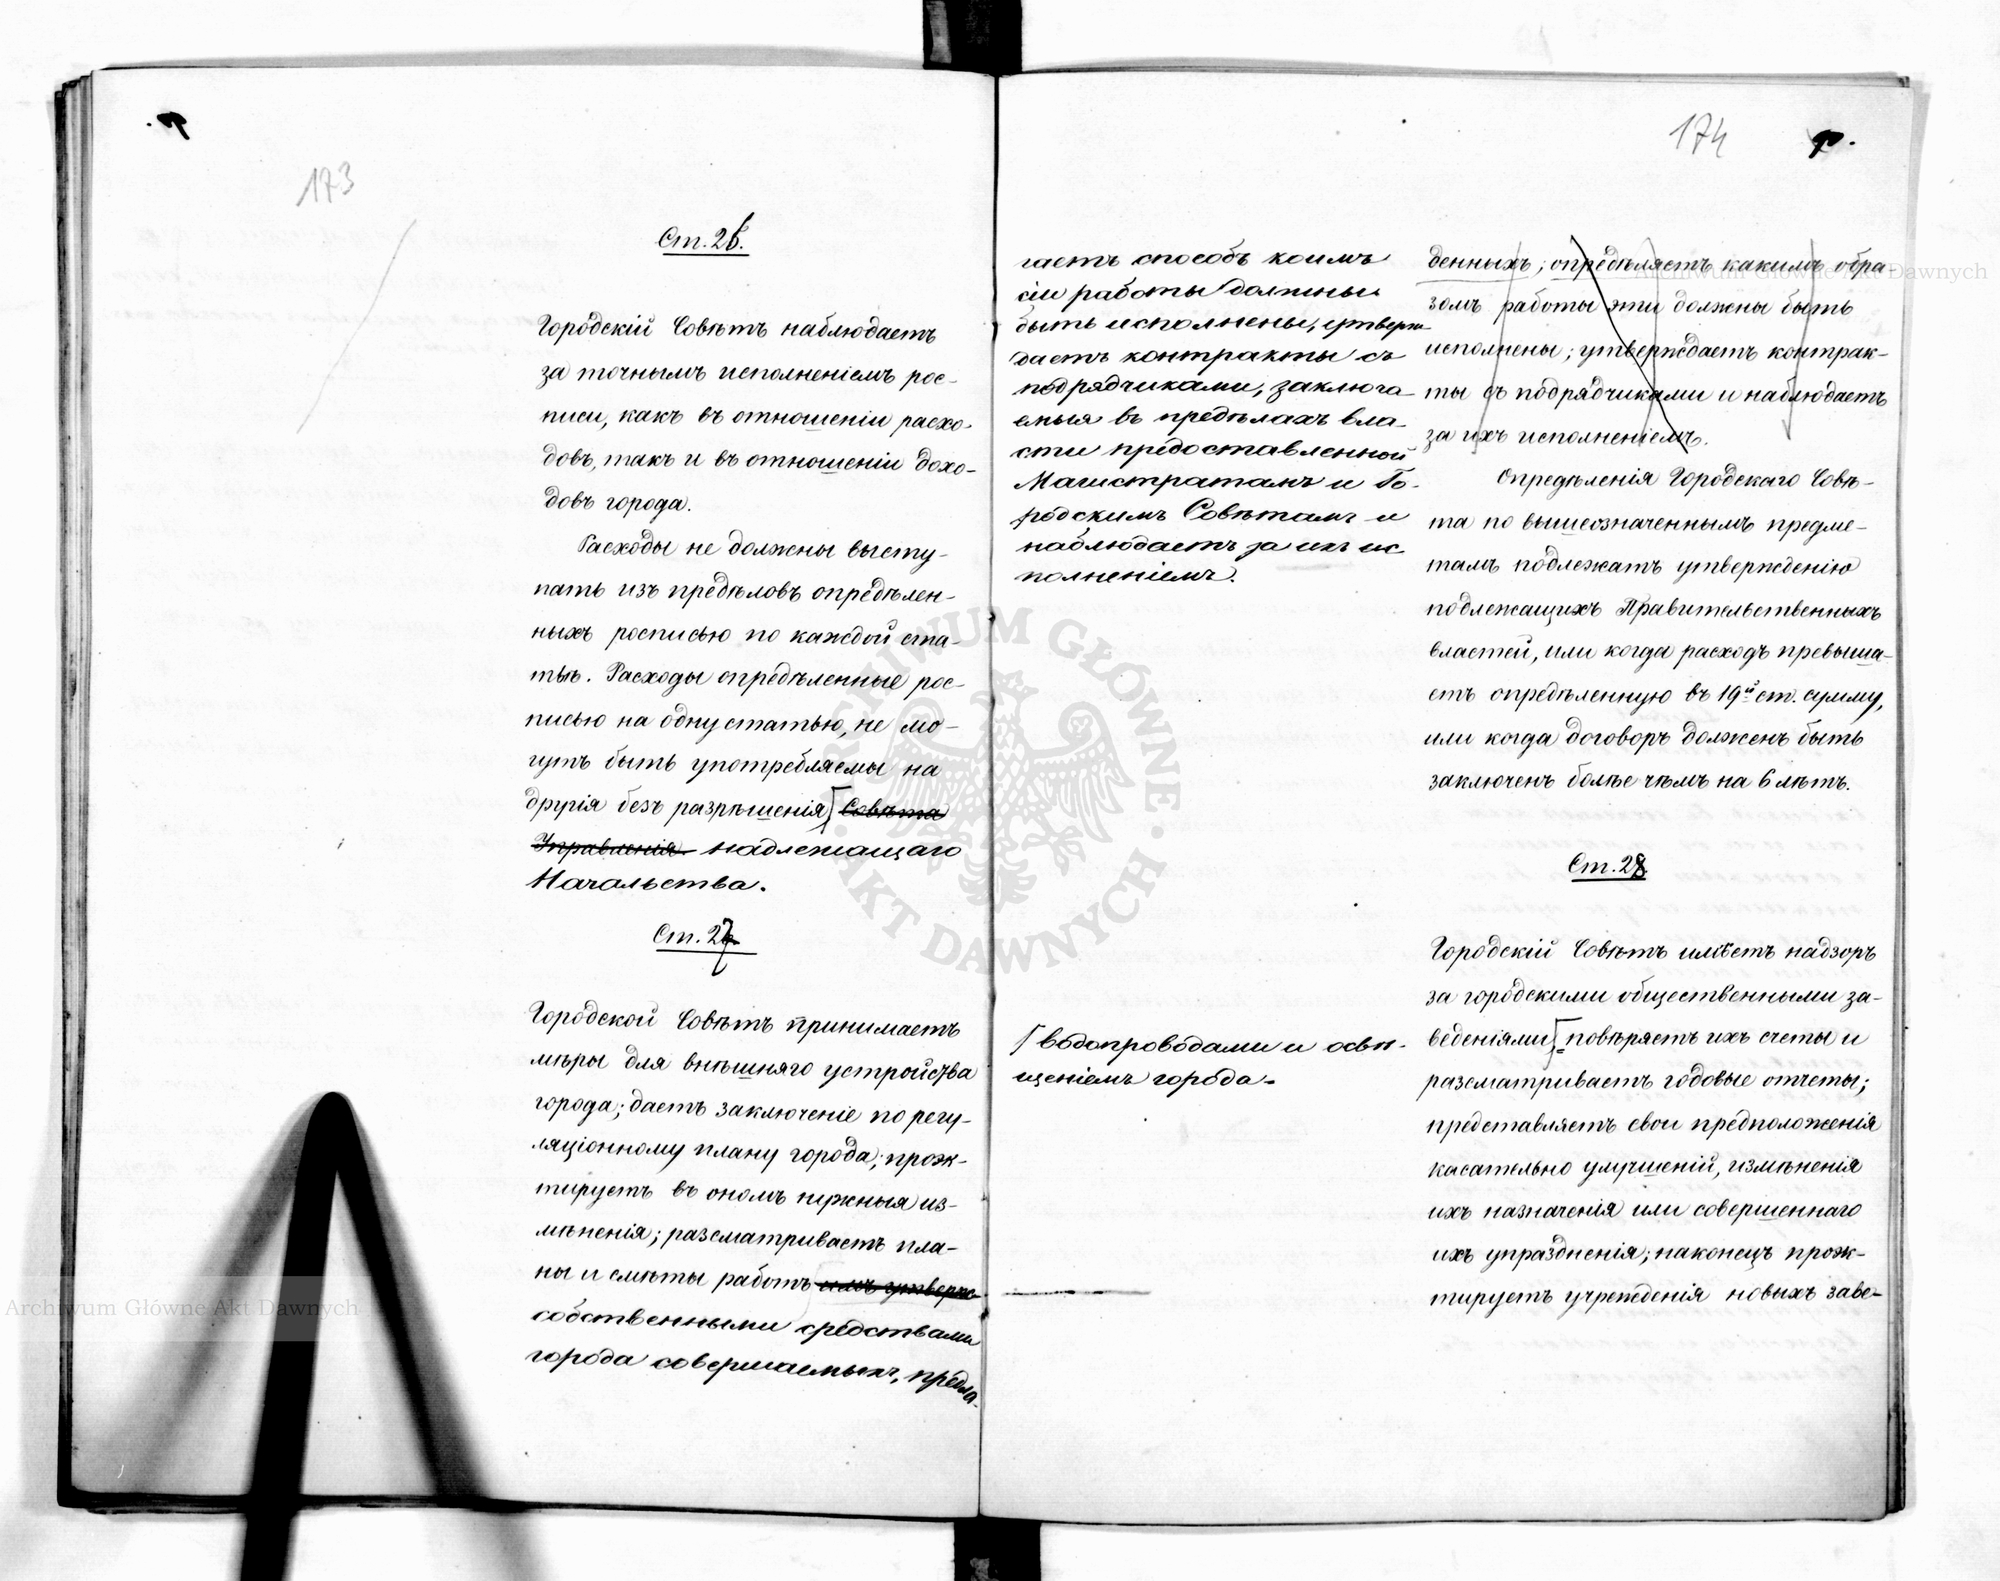 173
Ст. 26.
Городскій Совѣтъ наблюдаетъ
за точнымъ исполненіемъ рос-
писи, какъ въ отношеніи расхо-
довъ, такъ и въ отношеніи дохо-
довъ города.
Расходы не должны высту-
пать изъ предѣловъ опредѣлен-
ныхъ росписью по каждой ста-
тьѣ. Расходы опредѣленные рос-
писью на одну статью, не мо-
гутъ быть употребляемы на
другія безъ разрѣшенія Совѣта
Управленія надлежащаго
Начальства.
Ст. 27
Городской Совѣтъ принимаетъ
мѣры для внѣшняго устройства
города; даетъ заключеніе по регу-
ляціонному плану города; проэк-
тируетъ въ ономъ нужныя из-
мѣненія; разсматриваетъ пла-
ны и смѣты работъ имъ утверж-
собственными средствами
города совершаемыхъ, предла-
гаетъ способъ коимъ
сіи работы должны
быть исполнены, утверж-
даетъ контракты съ
подрядчиками, заключа-
емыя въ предѣлахъ вла-
сти предоставленной
Магистратамъ и Го-
родскимъ Совѣтамъ и
наблюдаетъ за ихъ ис
полненіемъ.
водопроводами и освѣ-
щеніемъ города
174
денныхъ; опредѣляетъ какимъ обра
зомъ работы эти должны быть
исполнены; утверждаетъ контрак-
ты съ подрядчиками и наблюдаетъ
за ихъ исполненіемъ.
Опредѣленія Городскаго Совѣ-
та по вышеозначеннымъ предме-
тамъ подлежатъ утвержденію
подлежащихъ Правительственныхъ
властей, или когда расходъ превыша-
етъ опредѣленную въ 19й ст. сумму,
или когда договоръ долженъ быть
заключенъ болѣе чѣмъ на 6 лѣтъ.
Ст. 28
Городскій Совѣтъ имѣетъ надзоръ
за городскими общественными за-
веденіями, повѣряетъ ихъ счеты и
разсматриваетъ годовые отчеты;
представляетъ свои предположенія
касательно улучшеній, измѣненія
ихъ назначенія или совершеннаго
ихъ упраздненія; наконецъ проэк-
тируетъ учрежденія новыхъ заве-
ARCHIWUM GŁÓWNE AKT DAWNYCH
Archiwum Główne Akt Dawnych
Archiwum Główne Akt Dawnych